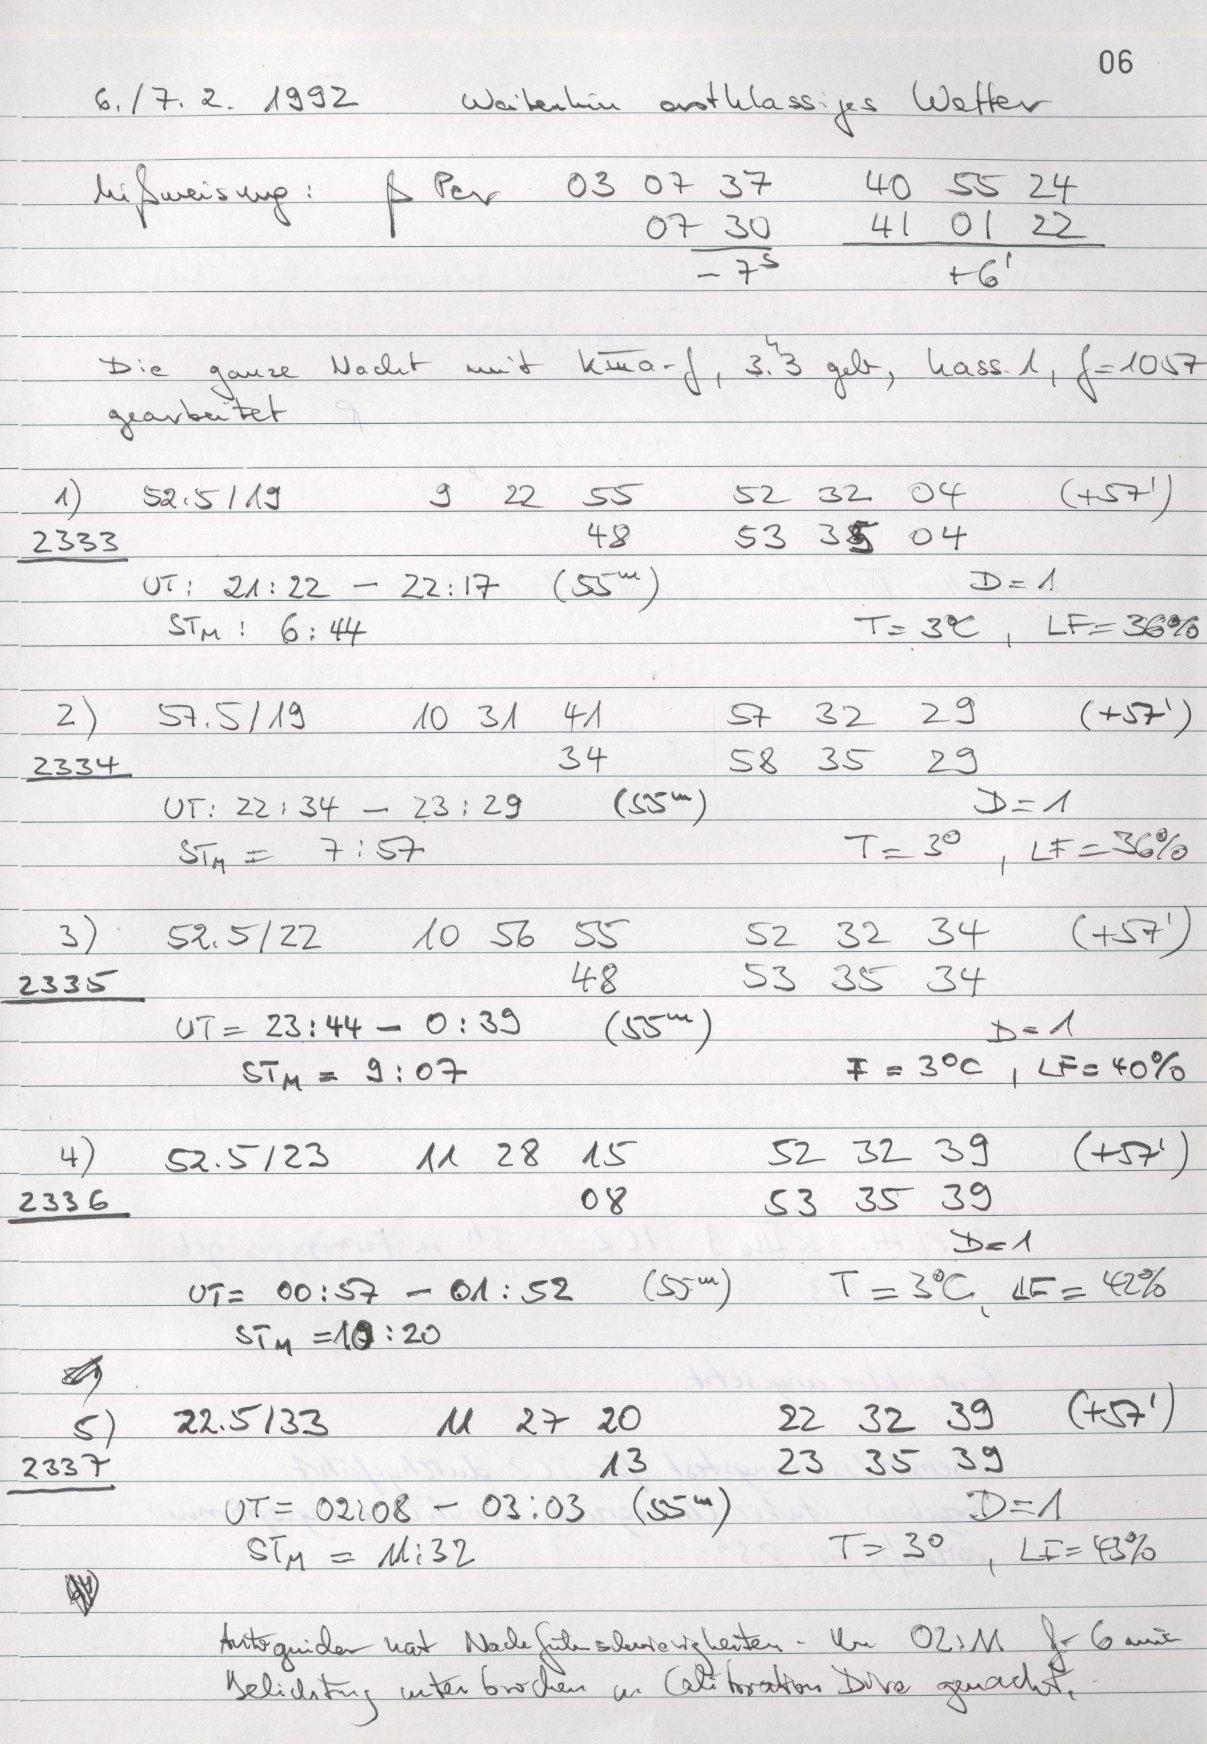 06
6./7. 2. 1992 Weiterhin erstklassiges Wetter
Mißweisung: β Per 03 07 37 40 55 24
07 30 41 01 22
- 7ˢ +6'
Die ganze Nacht mit IIIa-f, 3.ʰ3 geb, Kass. 1, f=1057
gearbeitet
1) 52.5/19 9 22 55 52 32 04 (+57')
2333 48 53 35 04
UT: 21:22 - 22:17 (55ᵐ) D=1
STM: 6:44 T= 3°C, LF=36%
2) 57.5/19 10 31 41 57 32 29 (+57')
2334 34 58 35 29
UT: 22:34 - 23:29 (55ᵐ) D=1
STM = 7:57 T= 3°, LF=36%
3) 52.5/22 10 56 55 52 32 34 (+57')
2335 48 53 35 34
UT= 23:44 - 0:39 (55ᵐ) D=1
STM = 9:07 T = 3°C, LF=40%
4) 52.5/23 11 28 15 52 32 39 (+57')
2336 08 53 35 39
D=1
UT= 00:57 - 01:52 (55ᵐ) T = 3°C, LF= 42%
STM =10:20
5) 22.5/33 11 27 20 22 32 39 (+57')
2337 13 23 35 39
UT= 02:08 - 03:03 (55ᵐ) D=1
STM = 11:32 T= 3°, LF=43%
Autoguider hat Nachführschwierigkeiten. Um 02:11 6 min
Belichtung unterbrochen Calibration Drive gemacht.